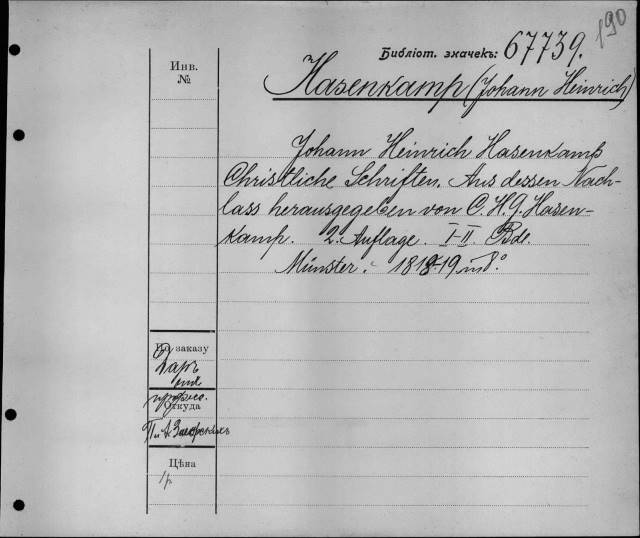 190
Библіот. значекъ: 67739.
Инв.
№
Hasenkamp (Johann Heinrich)
Johann Heinrich Hasenkamp
Christliche Schriften. Aus dessen Nach-
lass herausgegeben von C. H. G. Hasen-
kamp. 2. Auflage. I-II. Bde.
Münster. 1818-19 in 8°.
По заказу
Даръ
Откуда
Цѣна
1р